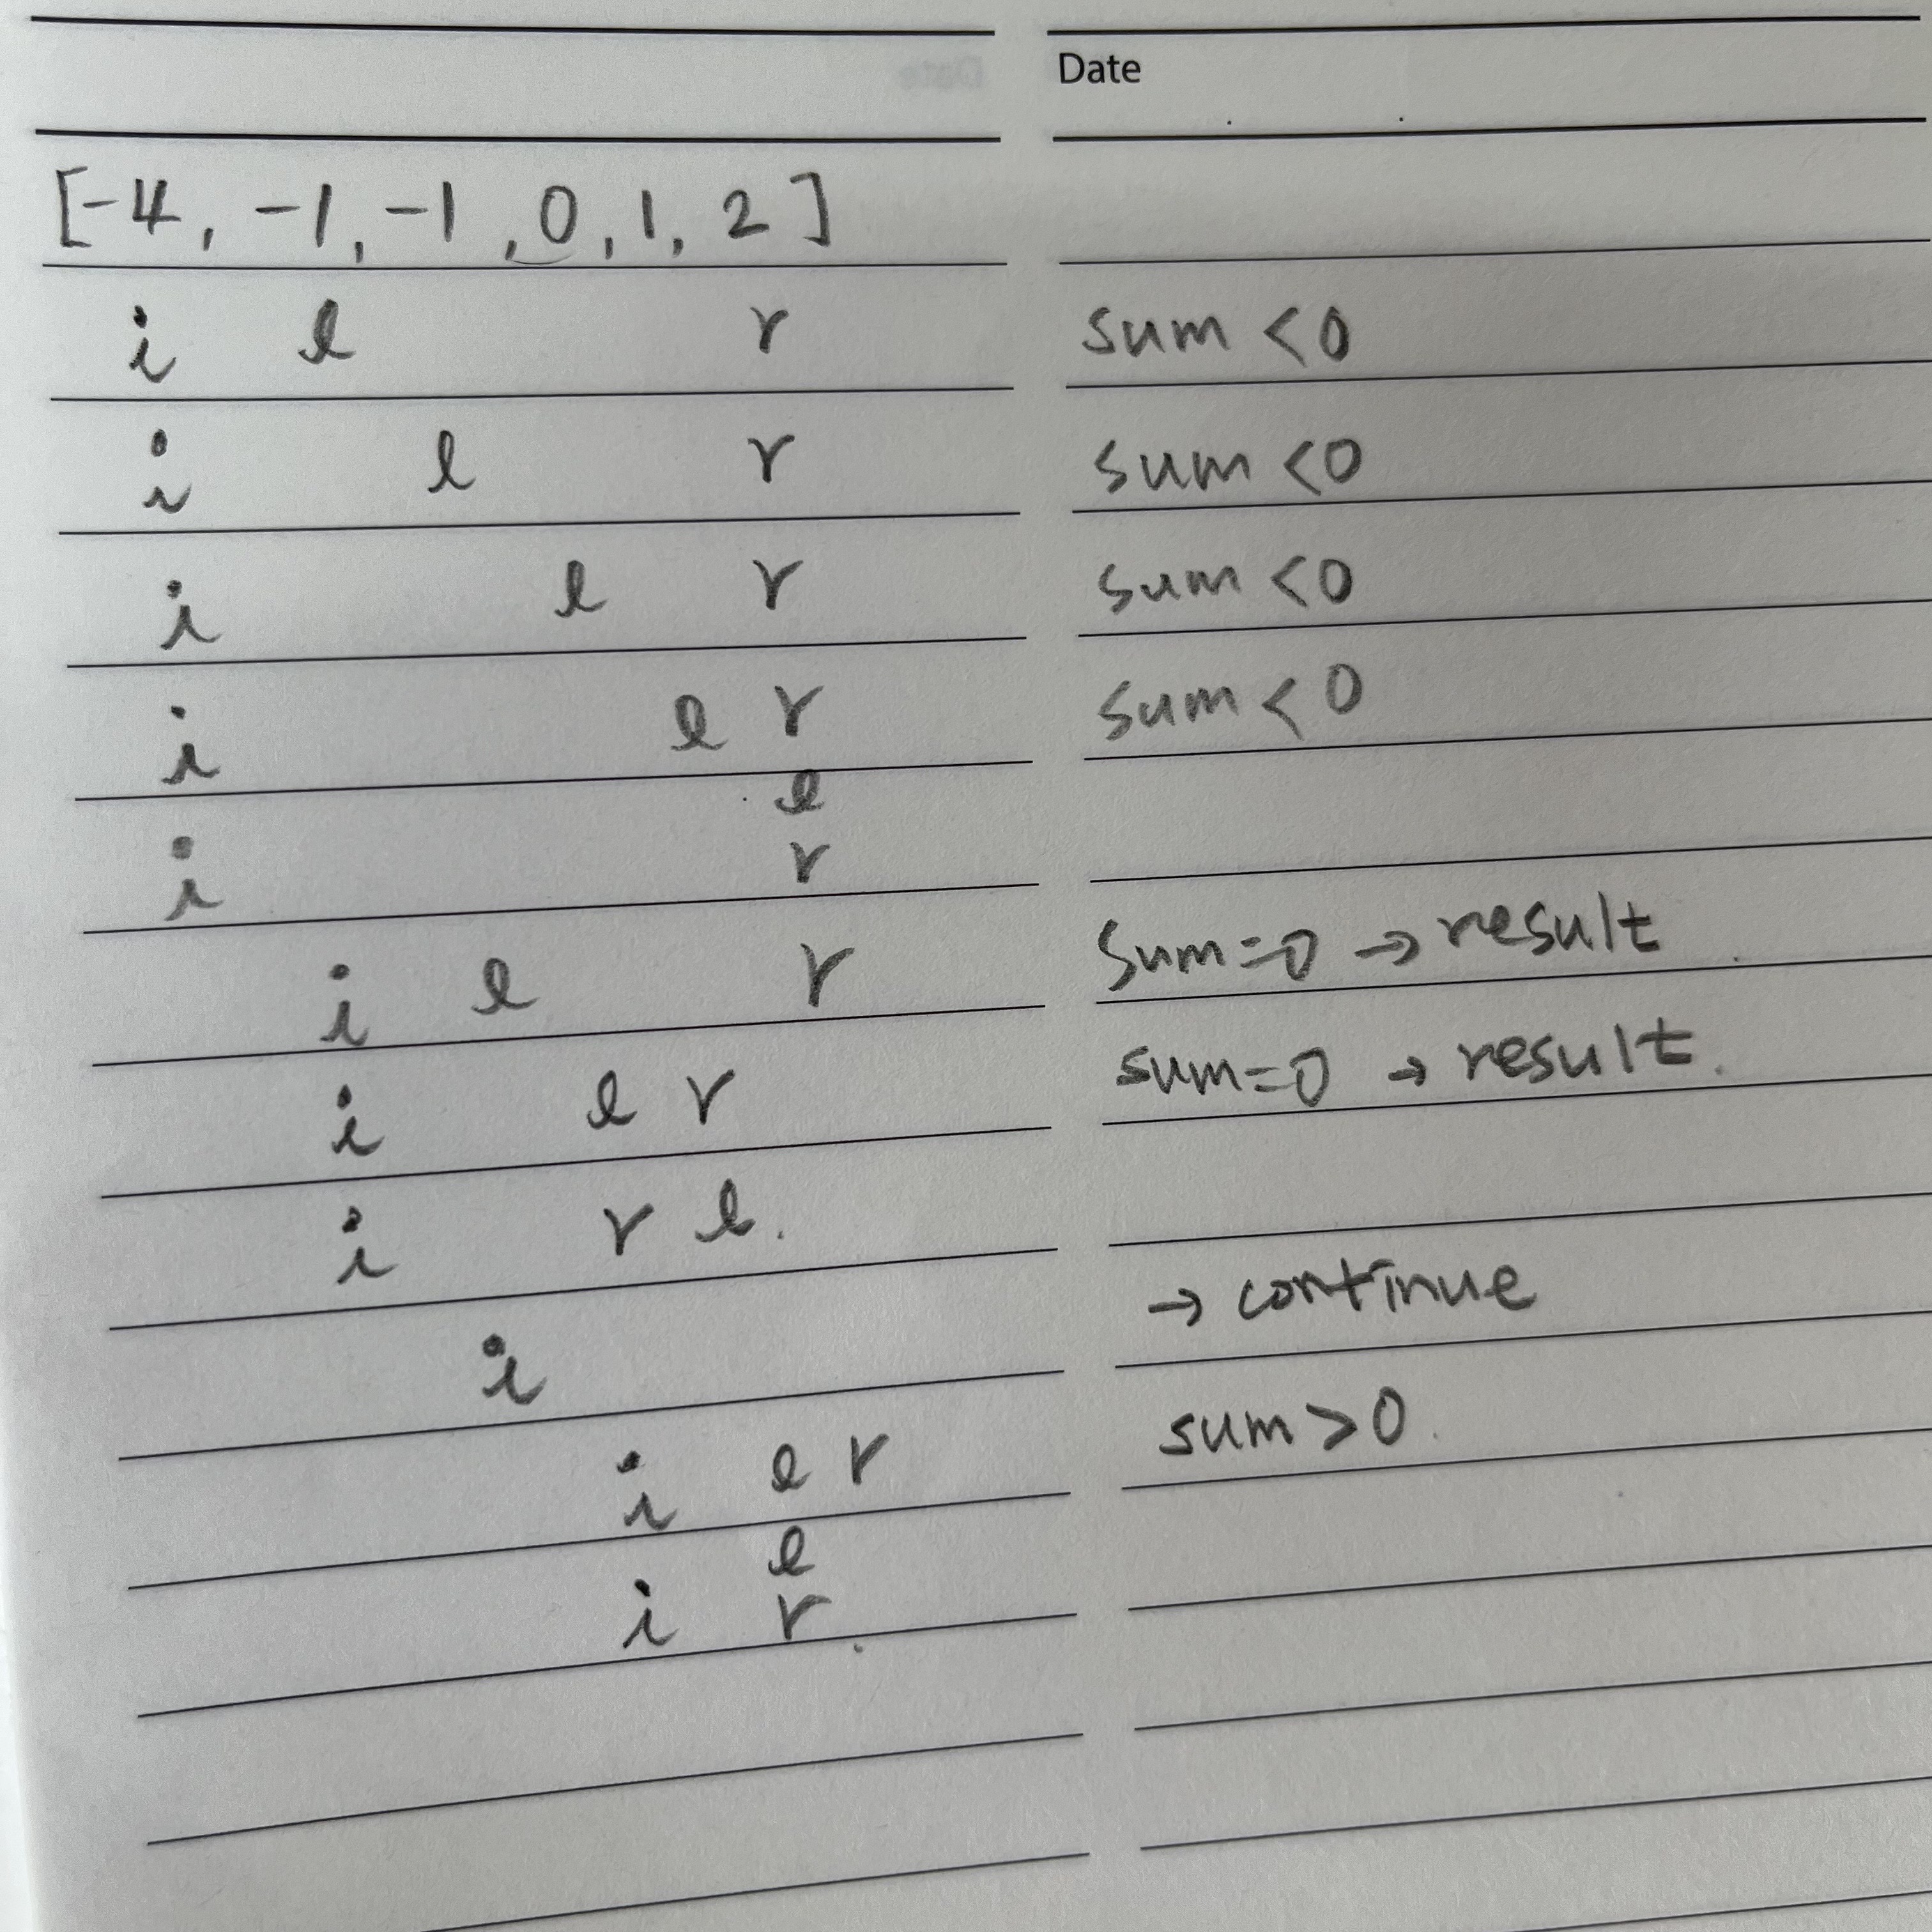 Date
[-4, -1, -1, 0, 1, 2]
i l r sum <0
i l r sum <0
i l r sum <0
i l r sum <0
l
i r
i l r sum=0 → result
i l r sum=0 → result.
i r l.
i → continue
i l r sum >0.
l
i r.